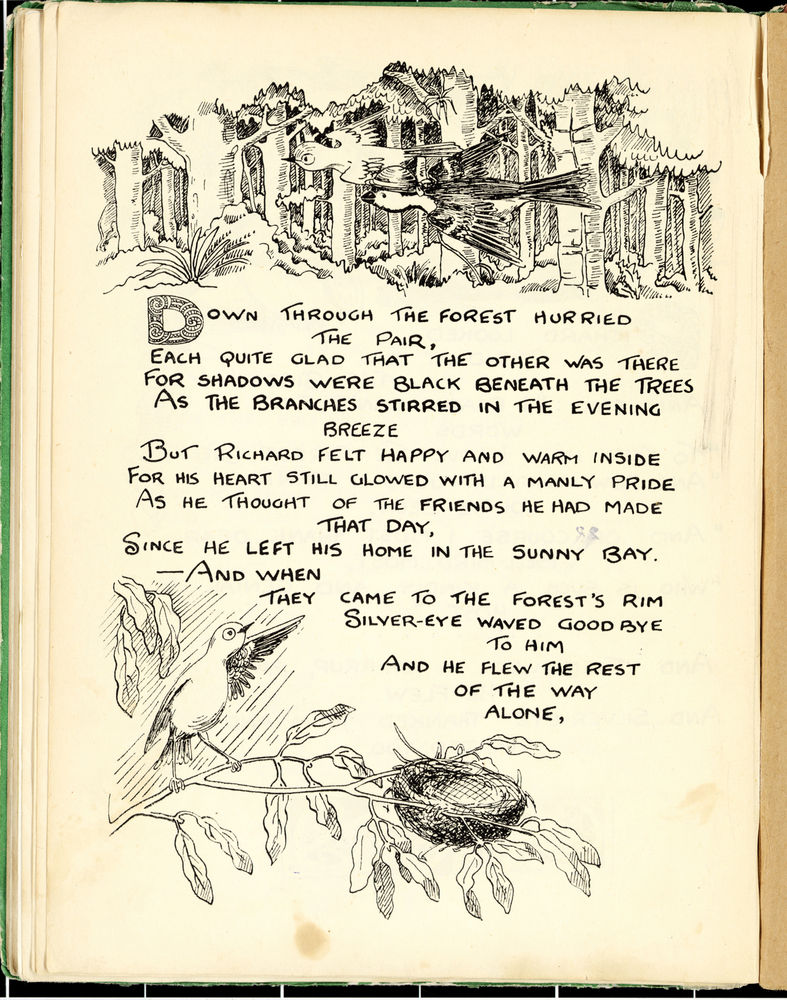 DOWN THROUGH THE FOREST HURRIED
THE PAIR,
EACH QUITE GLAD THAT THE OTHER WAS THERE
FOR SHADOWS WERE BLACK BENEATH THE TREES
AS THE BRANCHES STIRRED IN THE EVENING
BREEZE
BUT RICHARD FELT HAPPY AND WARM INSIDE
FOR HIS HEART STILL GLOWED WITH A MANLY PRIDE
AS HE THOUGHT OF THE FRIENDS HE HAD MADE
THAT DAY,
SINCE HE LEFT HIS HOME IN THE SUNNY BAY.
—AND WHEN
THEY CAME TO THE FOREST'S RIM
SILVER-EYE WAVED GOODBYE
TO HIM
AND HE FLEW THE REST
OF THE WAY
ALONE,